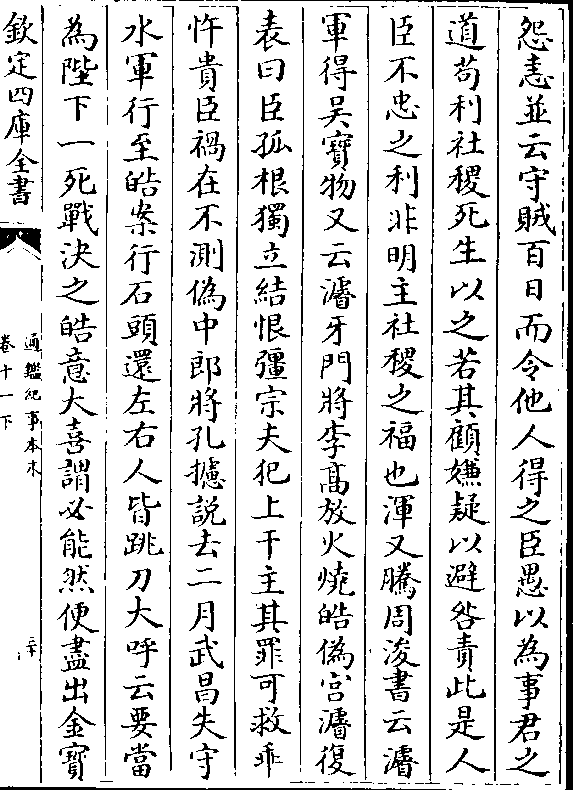 怨恚並云守賊百日而令他人得之臣愚以為事君之
道苟利社稷死生以之若其顧嫌疑以避咎責此是人
臣不忠之利非明主社稷之福也渾又騰周浚書云濬
軍得吳寶物又云濬牙門將李髙放火燒皓偽宮濬復
表曰臣孤根獨立結恨彊宗夫犯上干主其罪可救乖
忤貴臣禍在不測偽中郎將孔攄說去二月武昌失守
水軍行至皓案行石頭還左右人皆跳刀大呼云要當
為陛下一死戰決之皓意大喜謂必能然便盡出金寶
欽定四庫全書
通鑑紀事本末
卷十一下